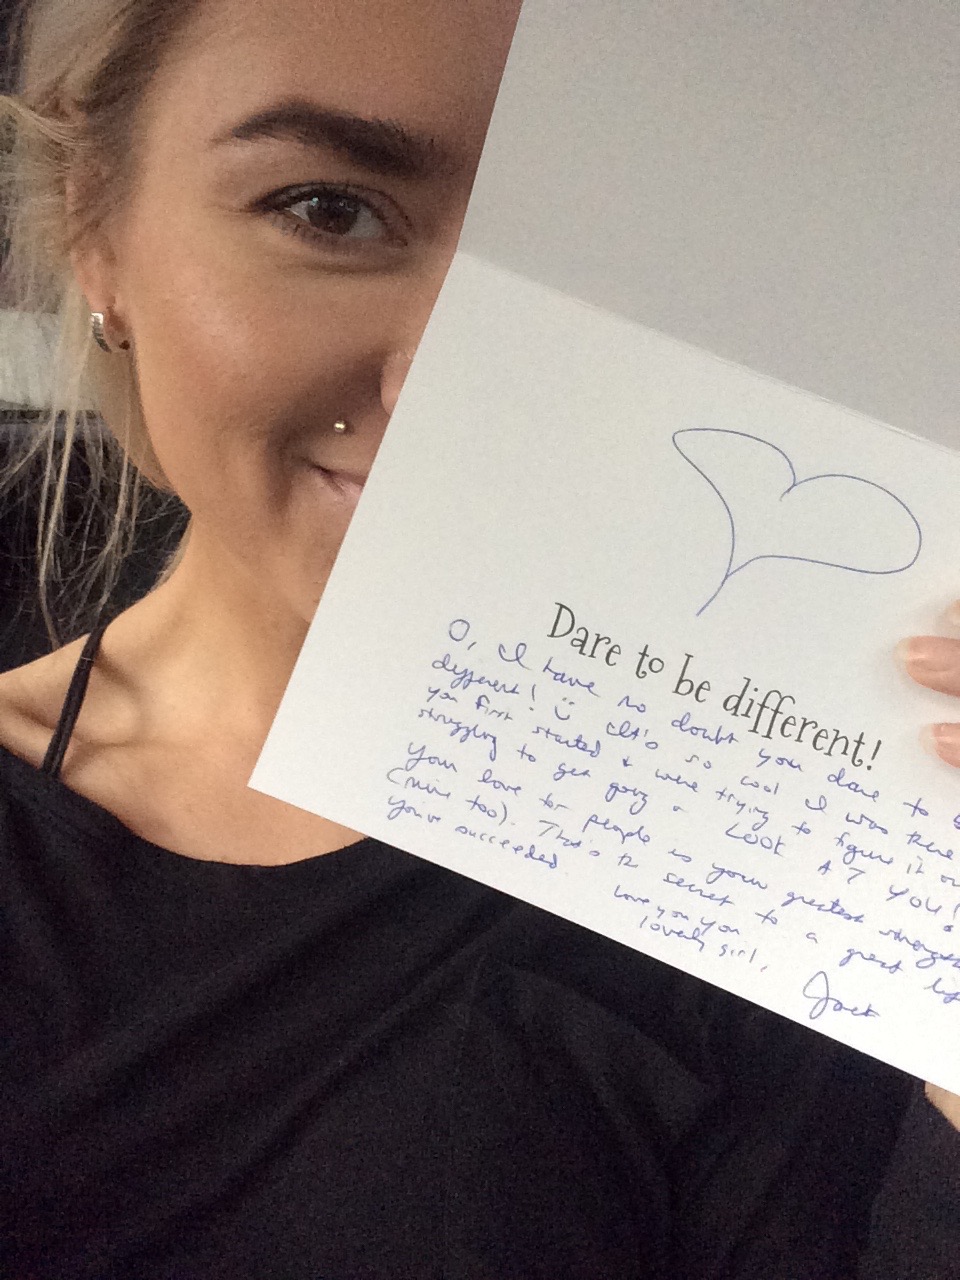 Dare to be different!
O, I have no doubt you dare to
different! :) It's so cool I was there
you first started & were trying to figure it
struggling to get going & LOOK AT YOU!
Your love for people is your greatest
(mine too). That's the secret to a great
You've succeeded
Love you you
lovely girl,
Jack